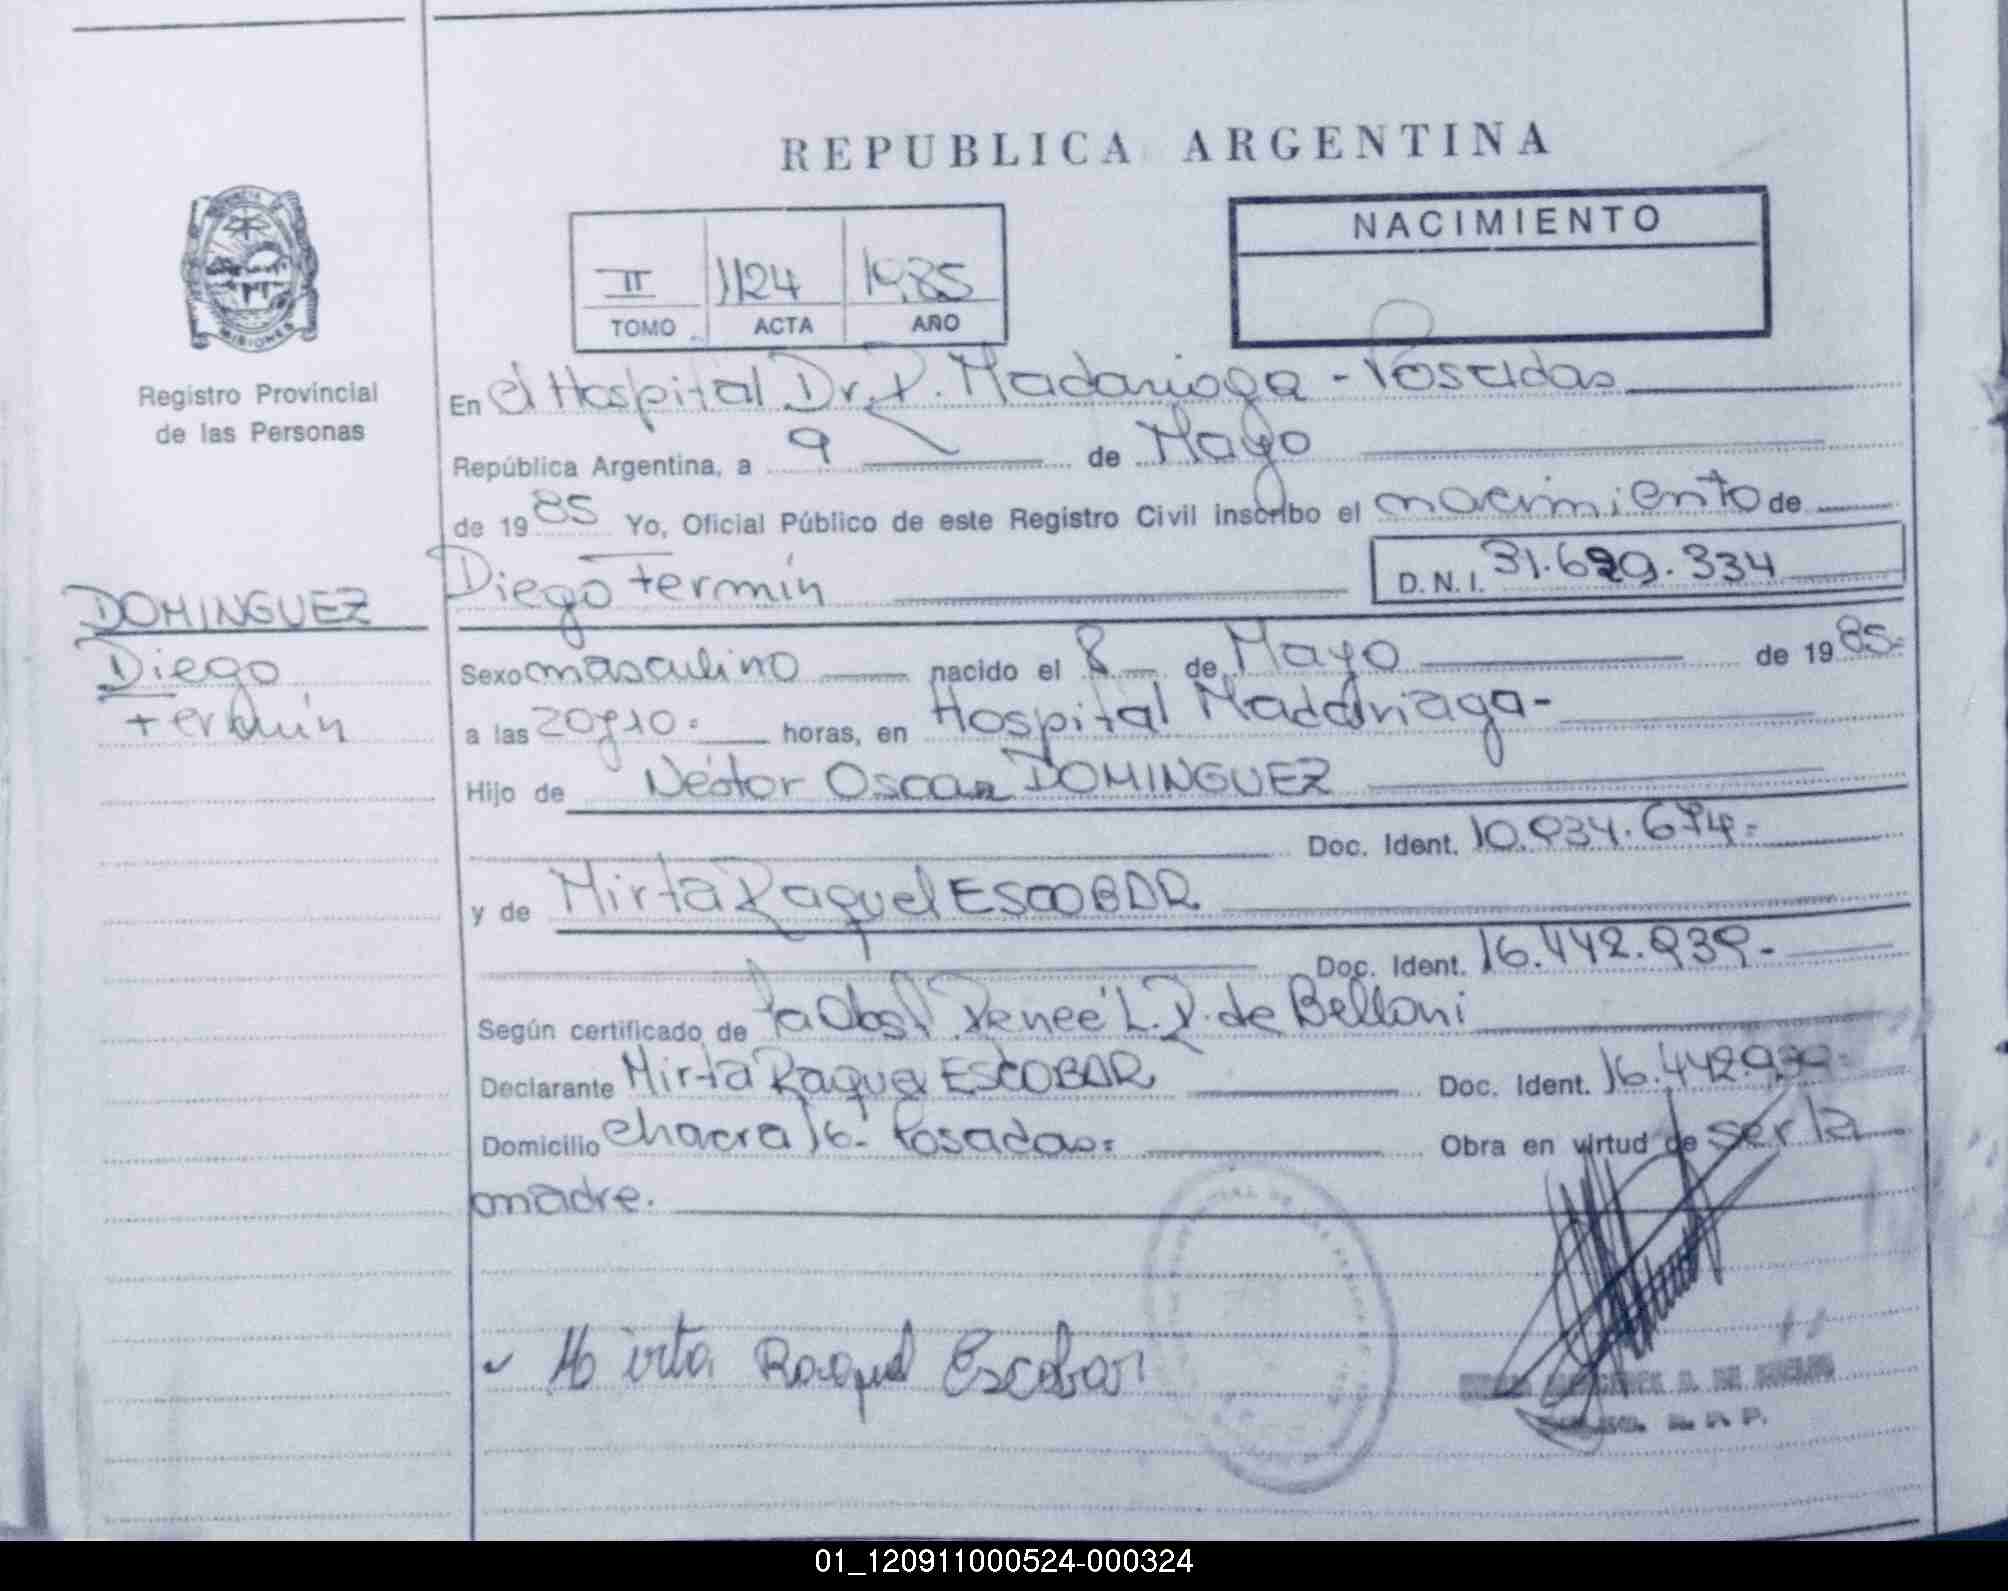 REPUBLICA ARGENTINA
PROVINCIA
MISIONES
Registro Provincial
de las Personas
NACIMIENTO
II 1124 1985
TOMO ACTA AÑO
En el Hospital Dr. R. Madariaga - Posadas
República Argentina, a 9 de Mayo
de 1985 Yo, Oficial Público de este Registro Civil inscribo el nacimiento de
Diego Fermín D.N.I. 31.629.334
DOMINGUEZ
Diego
Fermín
Sexo masculino nacido el 8 de Mayo de 1985.-
a las 20y10. horas, en Hospital Madariaga-
Hijo de Néstor Oscar DOMINGUEZ
Doc. Ident. 10.934.674.-
y de Mirta Raquel ESCOBAR
Doc. Ident. 16.442.939.-
Según certificado de la Obst. Renee L. R. de Belloni
Declarante Mirta Raquel ESCOBAR Doc. Ident. 16.442.939.-
Domicilio chacra 16.- Posadas.- Obra en virtud de ser la
madre.
Mirta Raquel Escobar
01_120911000524-000324